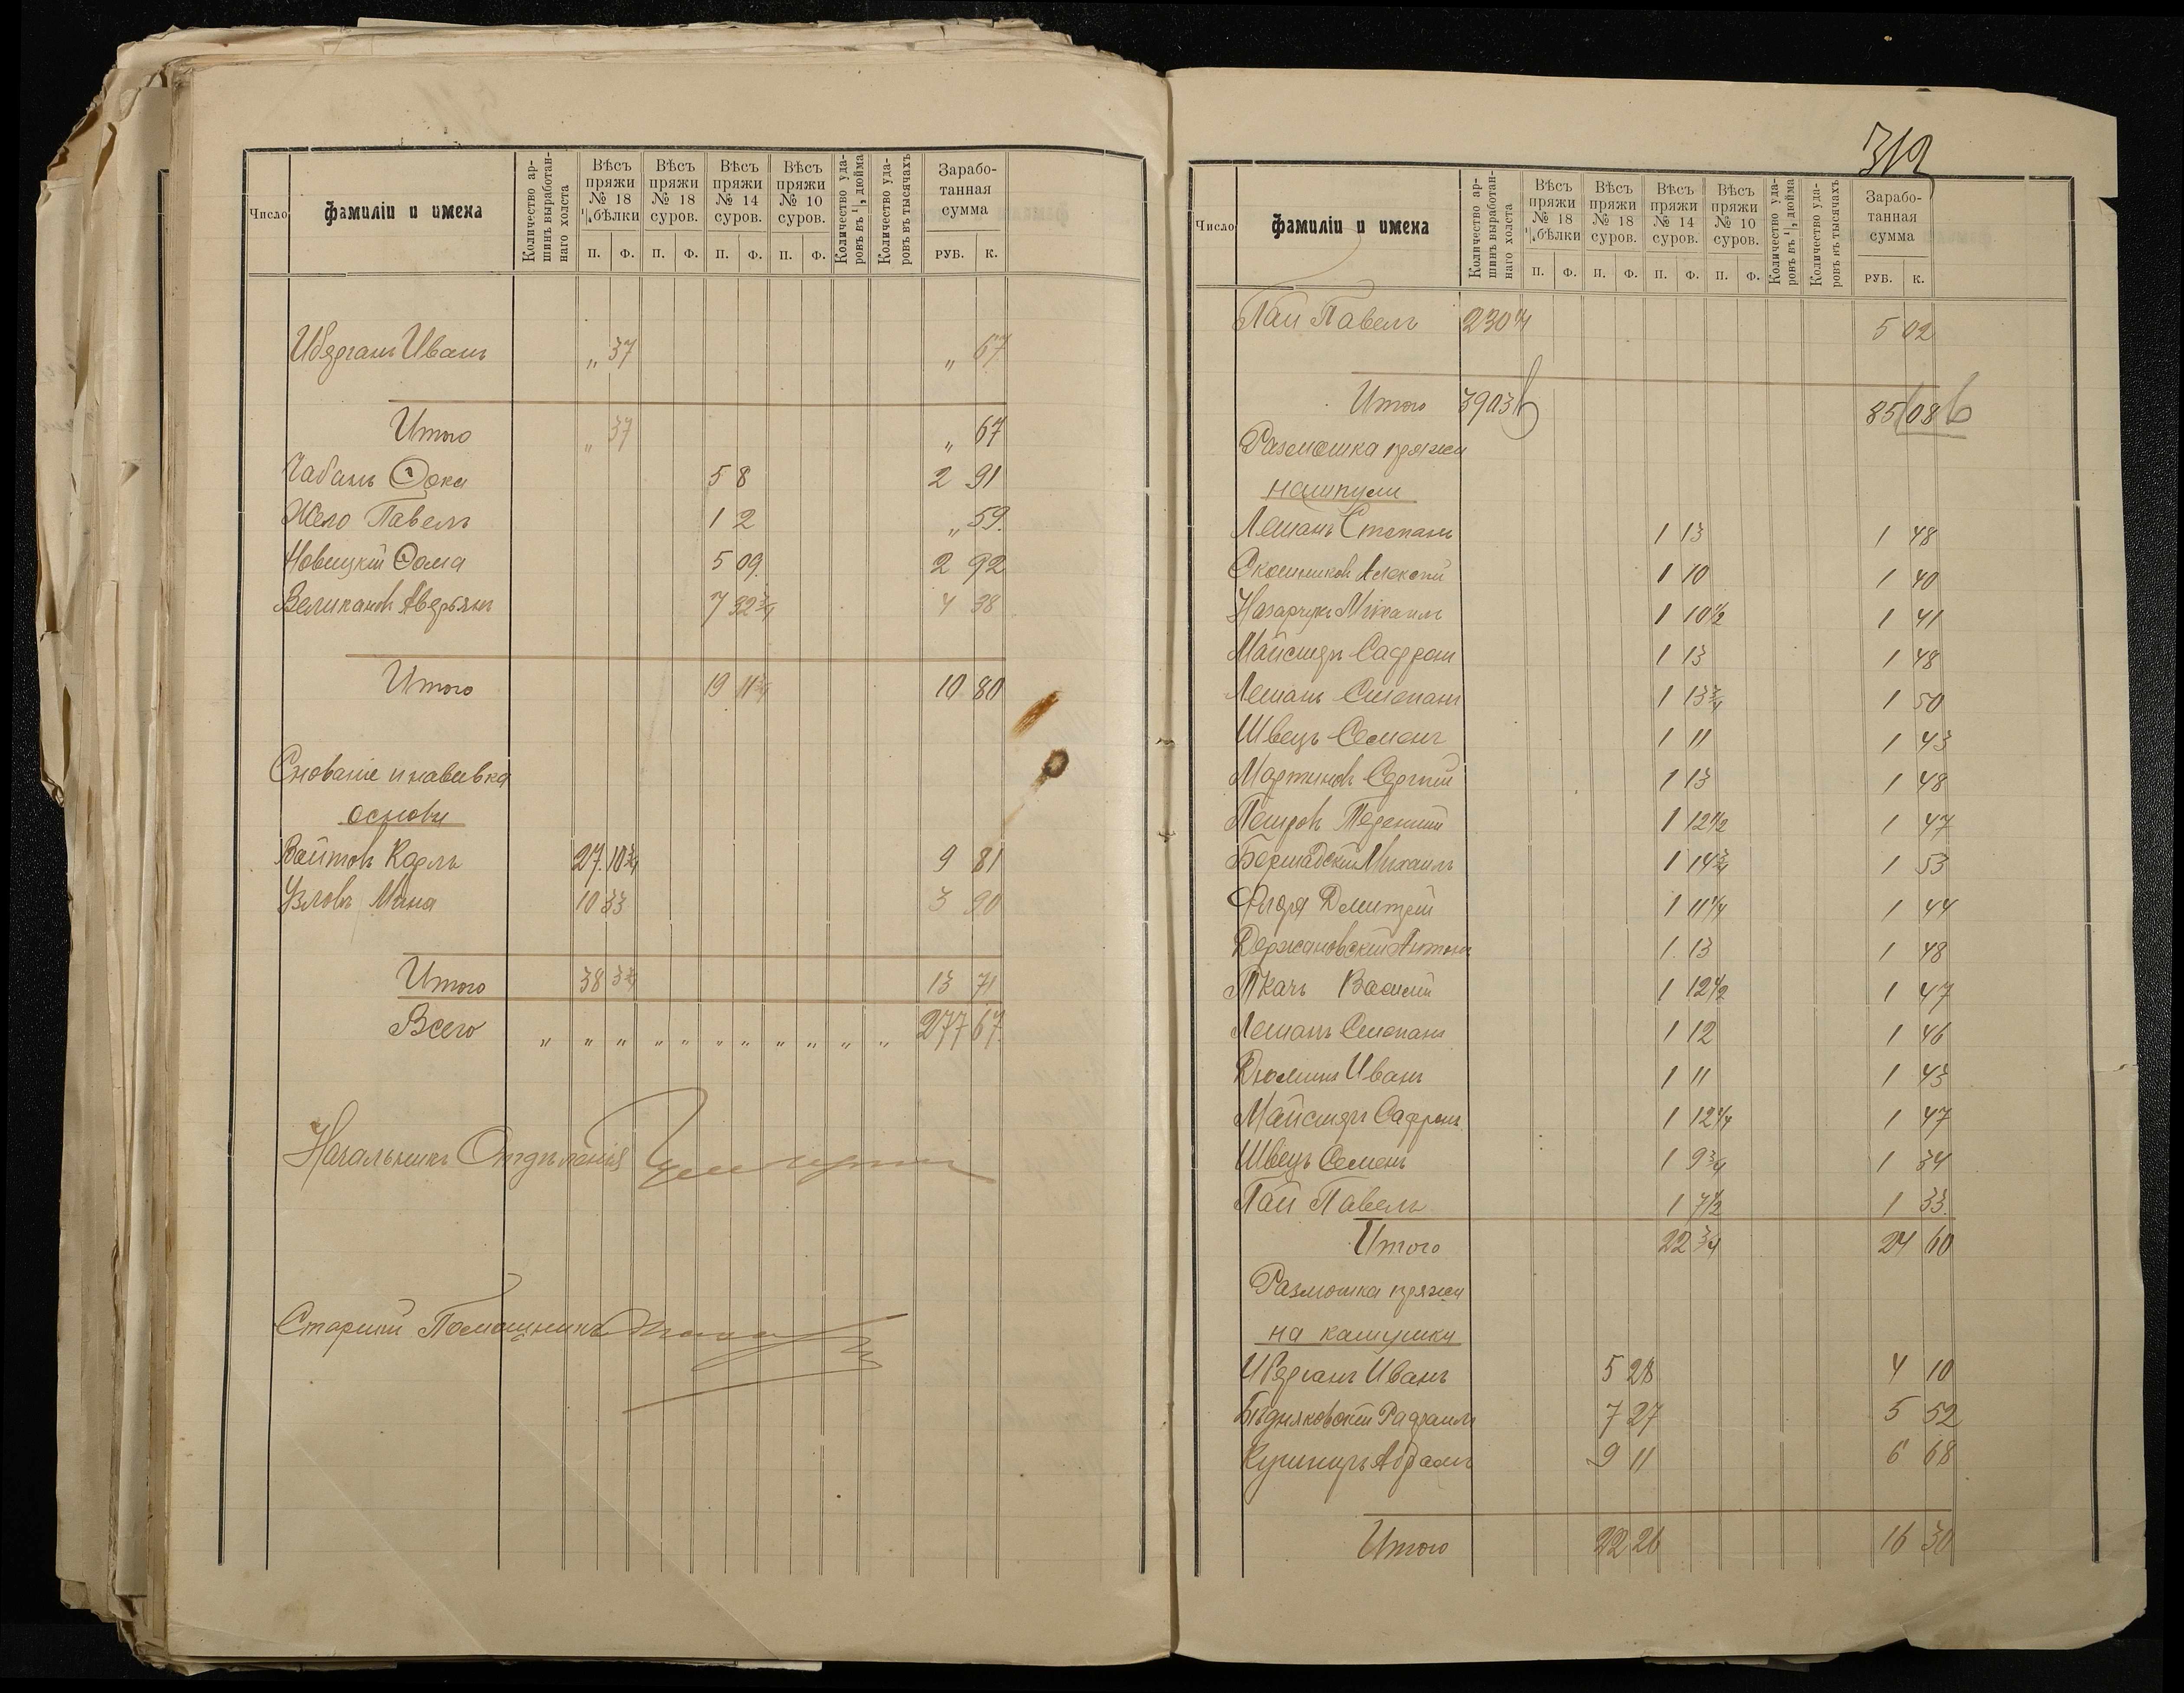 Число | фамиліи и имена | Количество аршинъ выработаннаго холста | Вѣсъ пряжи № 18 ½ бѣлки П. Ф. | Вѣсъ пряжи № 18 суров. П. Ф. | Вѣсъ пряжи № 14 суров. П. Ф. | Вѣсъ пряжи № 10 суров. П. Ф. | Количество ударовъ въ дюйма | Количество ударовъ въ тысячахъ | Заработанная сумма РУБ. К.
Иванъ „ 37 „ 67
Итого „ 37 „ 67
Чабанъ 5 8 2 91
Жело Павелъ 1 2 „ 59.
Новицкій Ѳома 5 09. 2 92
Великановъ Аверьянъ 7 32¾ 4 38
Итого 19 11¾ 10 80
Снованіе и навивка
основы
Войтовъ Карлъ 27. 10¾ 9 81
Узловъ Мина 10 33 3 90
Итого 38 3¾ 13 71
Всего „ „ „ „ „ „ „ „ „ „ „ 277 67.
Начальникъ Отдѣленія
Старшій Помощникъ
312
Число | фамиліи и имена | Количество аршинъ выработаннаго холста | Вѣсъ пряжи № 18 ½ бѣлки П. Ф. | Вѣсъ пряжи № 18 суров. П. Ф. | Вѣсъ пряжи № 14 суров. П. Ф. | Вѣсъ пряжи № 10 суров. П. Ф. | Количество ударовъ въ дюйма | Количество ударовъ въ тысячахъ | Заработанная сумма РУБ. К.
Пай Павелъ 5 02
Итого 85 08
Размотка пряжи
на шпули
Леманъ Степанъ 1 13 1 48
Алексѣй 1 10 1 40
Назарчукъ Михаилъ 1 10½ 1 41
Майстеръ Сафронъ 1 13 1 48
Леманъ Степанъ 1 13¾ 1 50
Швецъ Семенъ 1 11 1 43
Мартиновъ Сергѣй 1 13 1 48
Петровъ Терентій 1 12½ 1 47
Бершадскій Михаилъ 1 14¾ 1 53
Дмитрій 1 11¼ 1 44
Держановскій Антонъ 1. 13 1 48
Ткачъ Василій 1 12½ 1 47
Леманъ Степанъ 1 12 1 46
Иванъ 1 11 1 43
Майстеръ Сафронъ 1 12¼ 1 47
Швецъ Семенъ 1 9¾ 1 34
Пай Павелъ 1 7½ 1 33.
Итого 22 ¾ 24 60
Размотка пряжи
на катушки
Иванъ 5 28 4 10
Бѣдняковскій 7 27 5 52
Кушниръ Абрамъ 9 11 6 68
Итого 22 26 16 30